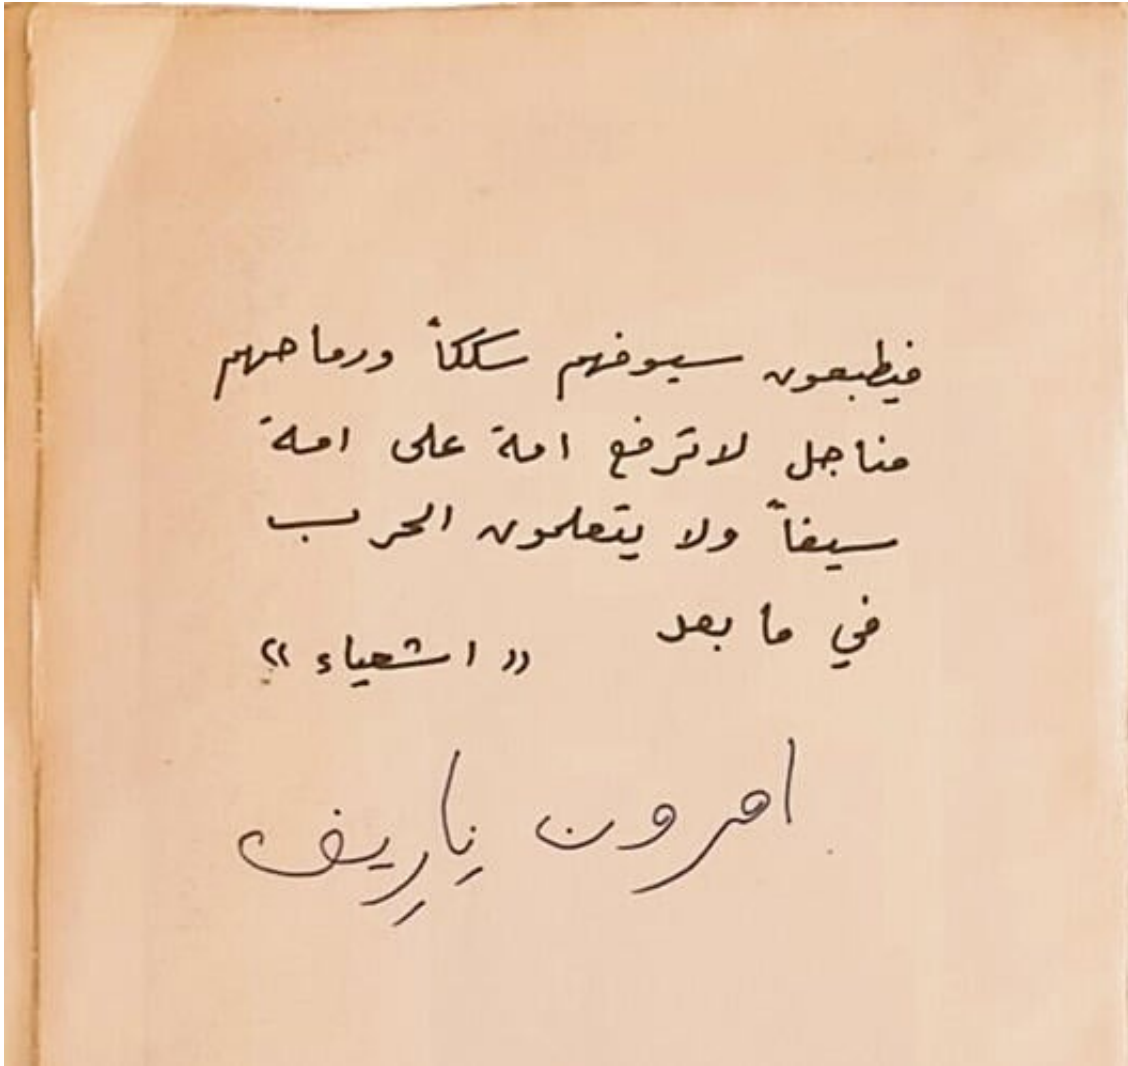 فيطبعون سيوفهم سككاً ورماحهم
مناجل لا ترفع امة على امة
سيفاً ولا يتعلمون الحرب
في ما بعد
« اشعياء »
اهرون ياريف